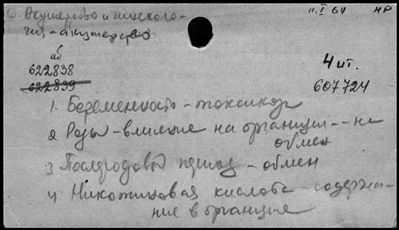 Акушерство и гинеколо-
гия - акушерство
п. I 64 НР
аб
622838
622839
4 ит.
607724
1. Беременность - токсикоз
2 Роды - влияние на организм - на
обмен
3 Послеродовой период - обмен
4 Никотиновая кислота - содержа-
ние в организме